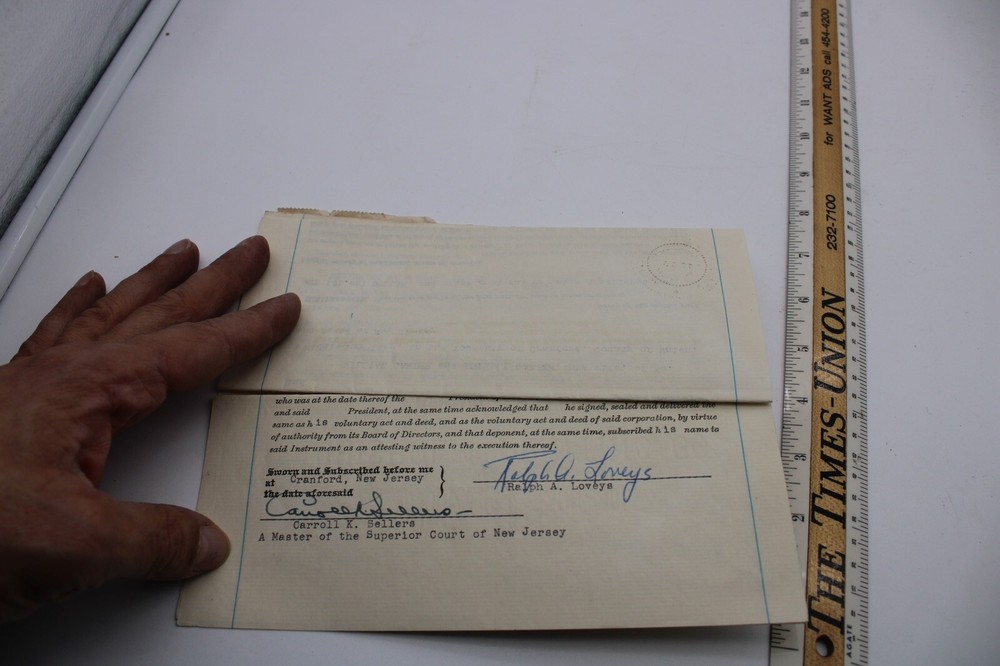 who was at the date thereof the
and said President, at the same time acknowledged that he signed, sealed and delivered the
same as h is voluntary act and deed, and as the voluntary act and deed of said corporation, by virtue
of authority from its Board of Directors, and that deponent, at the same time, subscribed h is name to
said Instrument as an attesting witness to the execution thereof.
Sworn and Subscribed before me
at Cranford, New Jersey
the date aforesaid
Ralph A. Loveys
Ralph A. Loveys
Carroll K. Sellers
Carroll K. Sellers
A Master of the Superior Court of New Jersey
THE TIMES-UNION 232-7100 for WANT ADS call 454-4200
AGATE
14
13
12
11
10
9
8
7
6
5
4
3
2